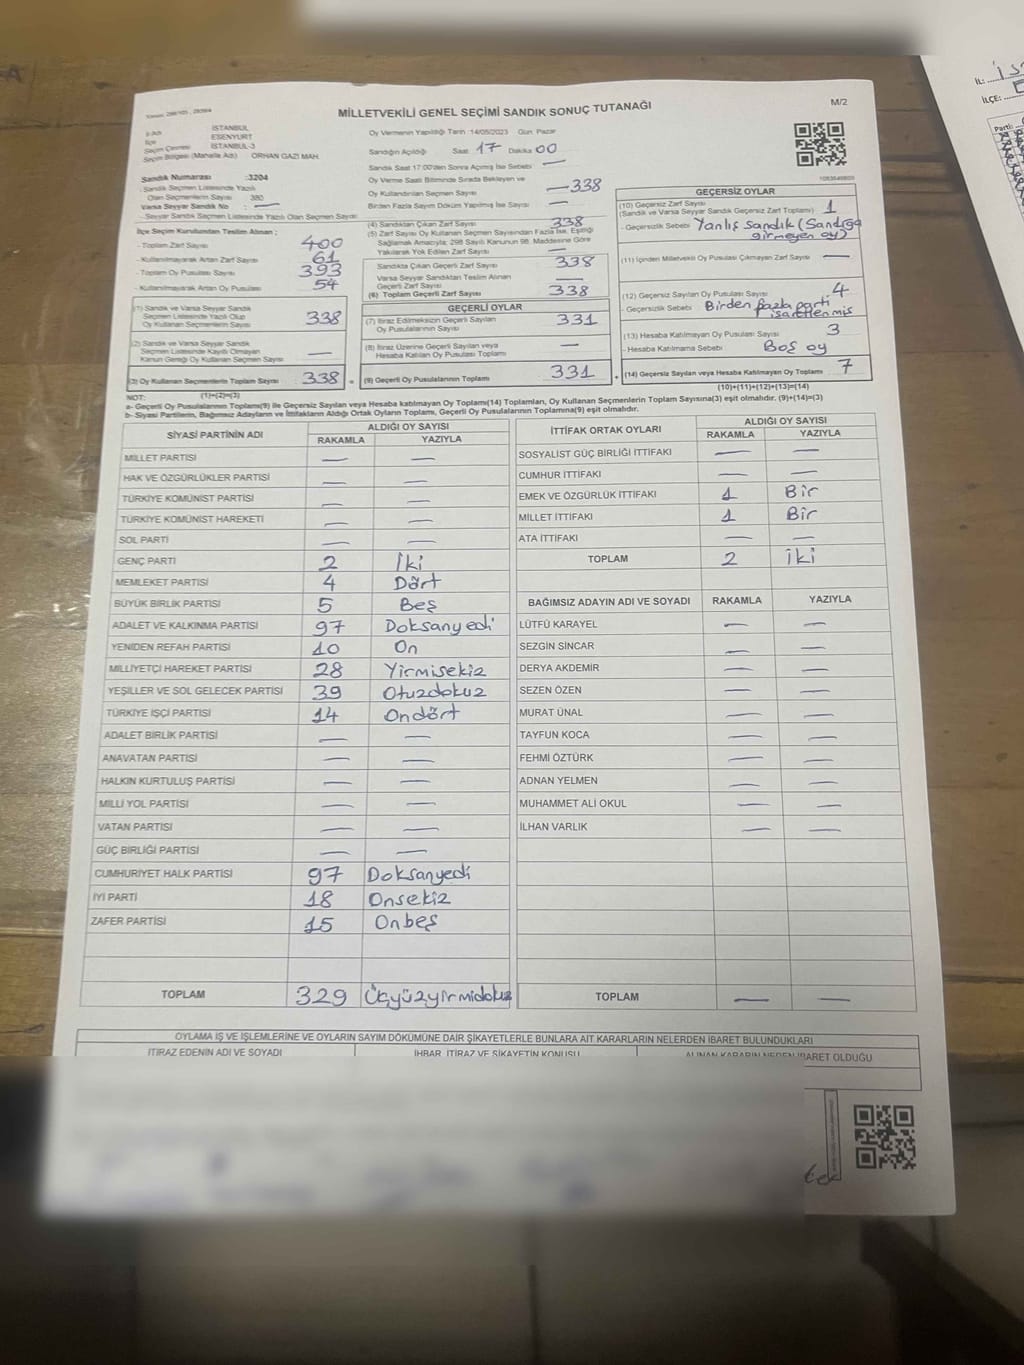 M/2
MİLLETVEKİLİ GENEL SEÇİMİ SANDIK SONUÇ TUTANAĞI
İSTANBUL
ESENYURT
İSTANBUL-3
Seçim Bölgesi (Mahalle Adı) ORHAN GAZİ MAH.
Oy Vermenin Yapıldığı Tarih 14/05/2023 Gün Pazar
Sandığın Açıldığı Saat 17 Dakika 00
Sandık Saat 17:00'den Sonra Açılmış İse Sebebi —
Oy Verme Saati Bitiminde Sırada Bekleyen ve
Oy Kullandırılan Seçmen Sayısı — 338
Birden Fazla Sayım Döküm Yapılmış İse Sayısı —
Sandık Numarası :3204
Sandık Seçmen Listesinde Yazılı
Olan Seçmenlerin Sayısı 380
Varsa Seyyar Sandık No : —
Seyyar Sandık Seçmen Listesinde Yazılı Olan Seçmen Sayısı
İlçe Seçim Kurulundan Teslim Alınan ;
- Toplam Zarf Sayısı 400
- Kullanılmayarak Artan Zarf Sayısı 61
- Toplam Oy Pusulası Sayısı 393
- Kullanılmayarak Artan Oy Pusulası 54
(1) Sandık ve Varsa Seyyar Sandık
Seçmen Listesinde Yazılı Olup
Oy Kullanan Seçmenlerin Sayısı 338
(2) Sandık ve Varsa Seyyar Sandık
Seçmen Listesinde Kayıtlı Olmayan
Kanun Gereği Oy Kullanan Seçmen Sayısı —
(3) Oy Kullanan Seçmenlerin Toplam Sayısı 338
(1)+(2)=(3)
(4) Sandıktan Çıkan Zarf Sayısı 338
(5) Zarf Sayısı Oy Kullanan Seçmen Sayısından Fazla İse, Eşitliği
Sağlamak Amacıyla; 298 Sayılı Kanunun 98. Maddesine Göre
Yakılarak Yok Edilen Zarf Sayısı —
Sandıkta Çıkan Geçerli Zarf Sayısı 338
Varsa Seyyar Sandıktan Teslim Alınan
Geçerli Zarf Sayısı —
(6) Toplam Geçerli Zarf Sayısı 338
GEÇERLİ OYLAR
(7) İtiraz Edilmeksizin Geçerli Sayılan
Oy Pusulalarının Sayısı 331
(8) İtiraz Üzerine Geçerli Sayılan veya
Hesaba Katılan Oy Pusulası Toplamı —
(9) Geçerli Oy Pusulalarının Toplamı 331
GEÇERSİZ OYLAR
(10) Geçersiz Zarf Sayısı 1
(Sandık ve Varsa Seyyar Sandık Geçersiz Zarf Toplamı)
- Geçersizlik Sebebi Yanlış sandık (Sandığa
girmeyen oy)
(11) İçinden Milletvekili Oy Pusulası Çıkmayan Zarf Sayısı —
(12) Geçersiz Sayılan Oy Pusulası Sayısı 4
- Geçersizlik Sebebi Birden fazla parti
işaretlenmiş
(13) Hesaba Katılmayan Oy Pusulası Sayısı 3
- Hesaba Katılmama Sebebi Boş oy
(14) Geçersiz Sayılan veya Hesaba Katılmayan Oy Toplamı 7
(10)+(11)+(12)+(13)=(14)
NOT:
a- Geçerli Oy Pusulalarının Toplamı(9) ile Geçersiz Sayılan veya Hesaba katılmayan Oy Toplamı(14) Toplamları, Oy Kullanan Seçmenlerin Toplam Sayısına(3) eşit olmalıdır. (9)+(14)=(3)
b- Siyasi Partilerin, Bağımsız Adayların ve İttifakların Aldığı Ortak Oyların Toplamı, Geçerli Oy Pusulalarının Toplamına(9) eşit olmalıdır.
SİYASİ PARTİNİN ADI ALDIĞI OY SAYISI
RAKAMLA YAZIYLA
MİLLET PARTİSİ — —
HAK VE ÖZGÜRLÜKLER PARTİSİ — —
TÜRKİYE KOMÜNİST PARTİSİ — —
TÜRKİYE KOMÜNİST HAREKETİ — —
SOL PARTİ — —
GENÇ PARTİ 2 İki
MEMLEKET PARTİSİ 4 Dört
BÜYÜK BİRLİK PARTİSİ 5 Beş
ADALET VE KALKINMA PARTİSİ 97 Doksanyedi
YENİDEN REFAH PARTİSİ 10 On
MİLLİYETÇİ HAREKET PARTİSİ 28 Yirmisekiz
YEŞİLLER VE SOL GELECEK PARTİSİ 39 Otuzdokuz
TÜRKİYE İŞÇİ PARTİSİ 14 Ondört
ADALET BİRLİK PARTİSİ — —
ANAVATAN PARTİSİ — —
HALKIN KURTULUŞ PARTİSİ — —
MİLLİ YOL PARTİSİ — —
VATAN PARTİSİ — —
GÜÇ BİRLİĞİ PARTİSİ — —
CUMHURİYET HALK PARTİSİ 97 Doksanyedi
İYİ PARTİ 18 Onsekiz
ZAFER PARTİSİ 15 Onbeş
TOPLAM 329 Üçyüzyirmidokuz
İTTİFAK ORTAK OYLARI ALDIĞI OY SAYISI
RAKAMLA YAZIYLA
SOSYALİST GÜÇ BİRLİĞİ İTTİFAKI — —
CUMHUR İTTİFAKI — —
EMEK VE ÖZGÜRLÜK İTTİFAKI 1 Bir
MİLLET İTTİFAKI 1 Bir
ATA İTTİFAKI — —
TOPLAM 2 İki
BAĞIMSIZ ADAYIN ADI VE SOYADI RAKAMLA YAZIYLA
LÜTFÜ KARAYEL — —
SEZGİN SİNCAR — —
DERYA AKDEMİR — —
SEZEN ÖZEN — —
MURAT ÜNAL — —
TAYFUN KOCA — —
FEHMİ ÖZTÜRK — —
ADNAN YELMEN — —
MUHAMMET ALİ OKUL — —
İLHAN VARLIK — —
TOPLAM — —
OYLAMA İŞ VE İŞLEMLERİNE VE OYLARIN SAYIM DÖKÜMÜNE DAİR ŞİKAYETLERLE BUNLARA AİT KARARLARIN NELERDEN İBARET BULUNDUKLARI
İTİRAZ EDENİN ADI VE SOYADI İHBAR, İTİRAZ VE ŞİKAYETİN KONUSU ALINAN KARARIN NEDEN İBARET OLDUĞU
İL:
İLÇE:
Parti: